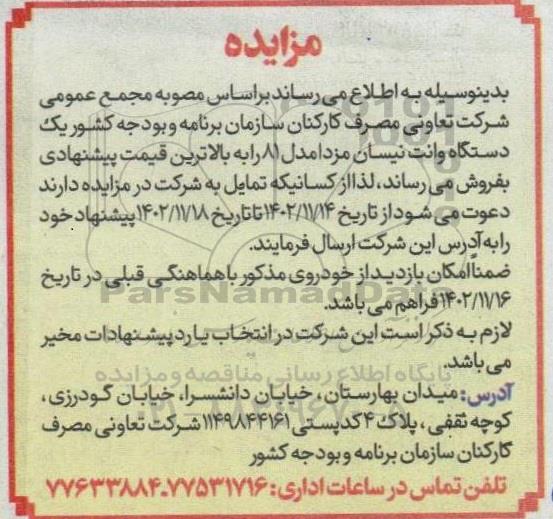 مزایده
بدینوسیله به اطلاع می رساند براساس مصوبه مجمع عمومی
شرکت تعاونی مصرف کارکنان سازمان برنامه و بودجه کشور یک
دستگاه وانت نیسان مزدا مدل ۸۱ را به بالاترین قیمت پیشنهادی
بفروش می رساند، لذا از کسانیکه تمایل به شرکت در مزایده دارند
دعوت می شود از تاریخ ۱۴۰۲/۱۱/۱۴ تا تاریخ ۱۴۰۲/۱۱/۱۸ پیشنهاد خود
را به آدرس این شرکت ارسال فرمایند.
ضمناً امکان بازدید از خودروی مذکور با هماهنگی قبلی در تاریخ
۱۴۰۲/۱۱/۱۶ فراهم می باشد.
ParsNamadData
لازم به ذکر است این شرکت در انتخاب یا رد پیشنهادات مخیر
می باشد.
پایگاه اطلاع رسانی مناقصه و مزایده
آدرس: میدان بهارستان، خیابان دانشسرا، خیابان گودرزی،
کوچه ثقفی، پلاک ۴ کدپستی ۱۱۴۹۸۴۴۱۶۱ شرکت تعاونی مصرف
کارکنان سازمان برنامه و بودجه کشور
تلفن تماس در ساعات اداری: ۷۷۵۳۱۷۱۶-۷۷۶۳۳۸۸۴